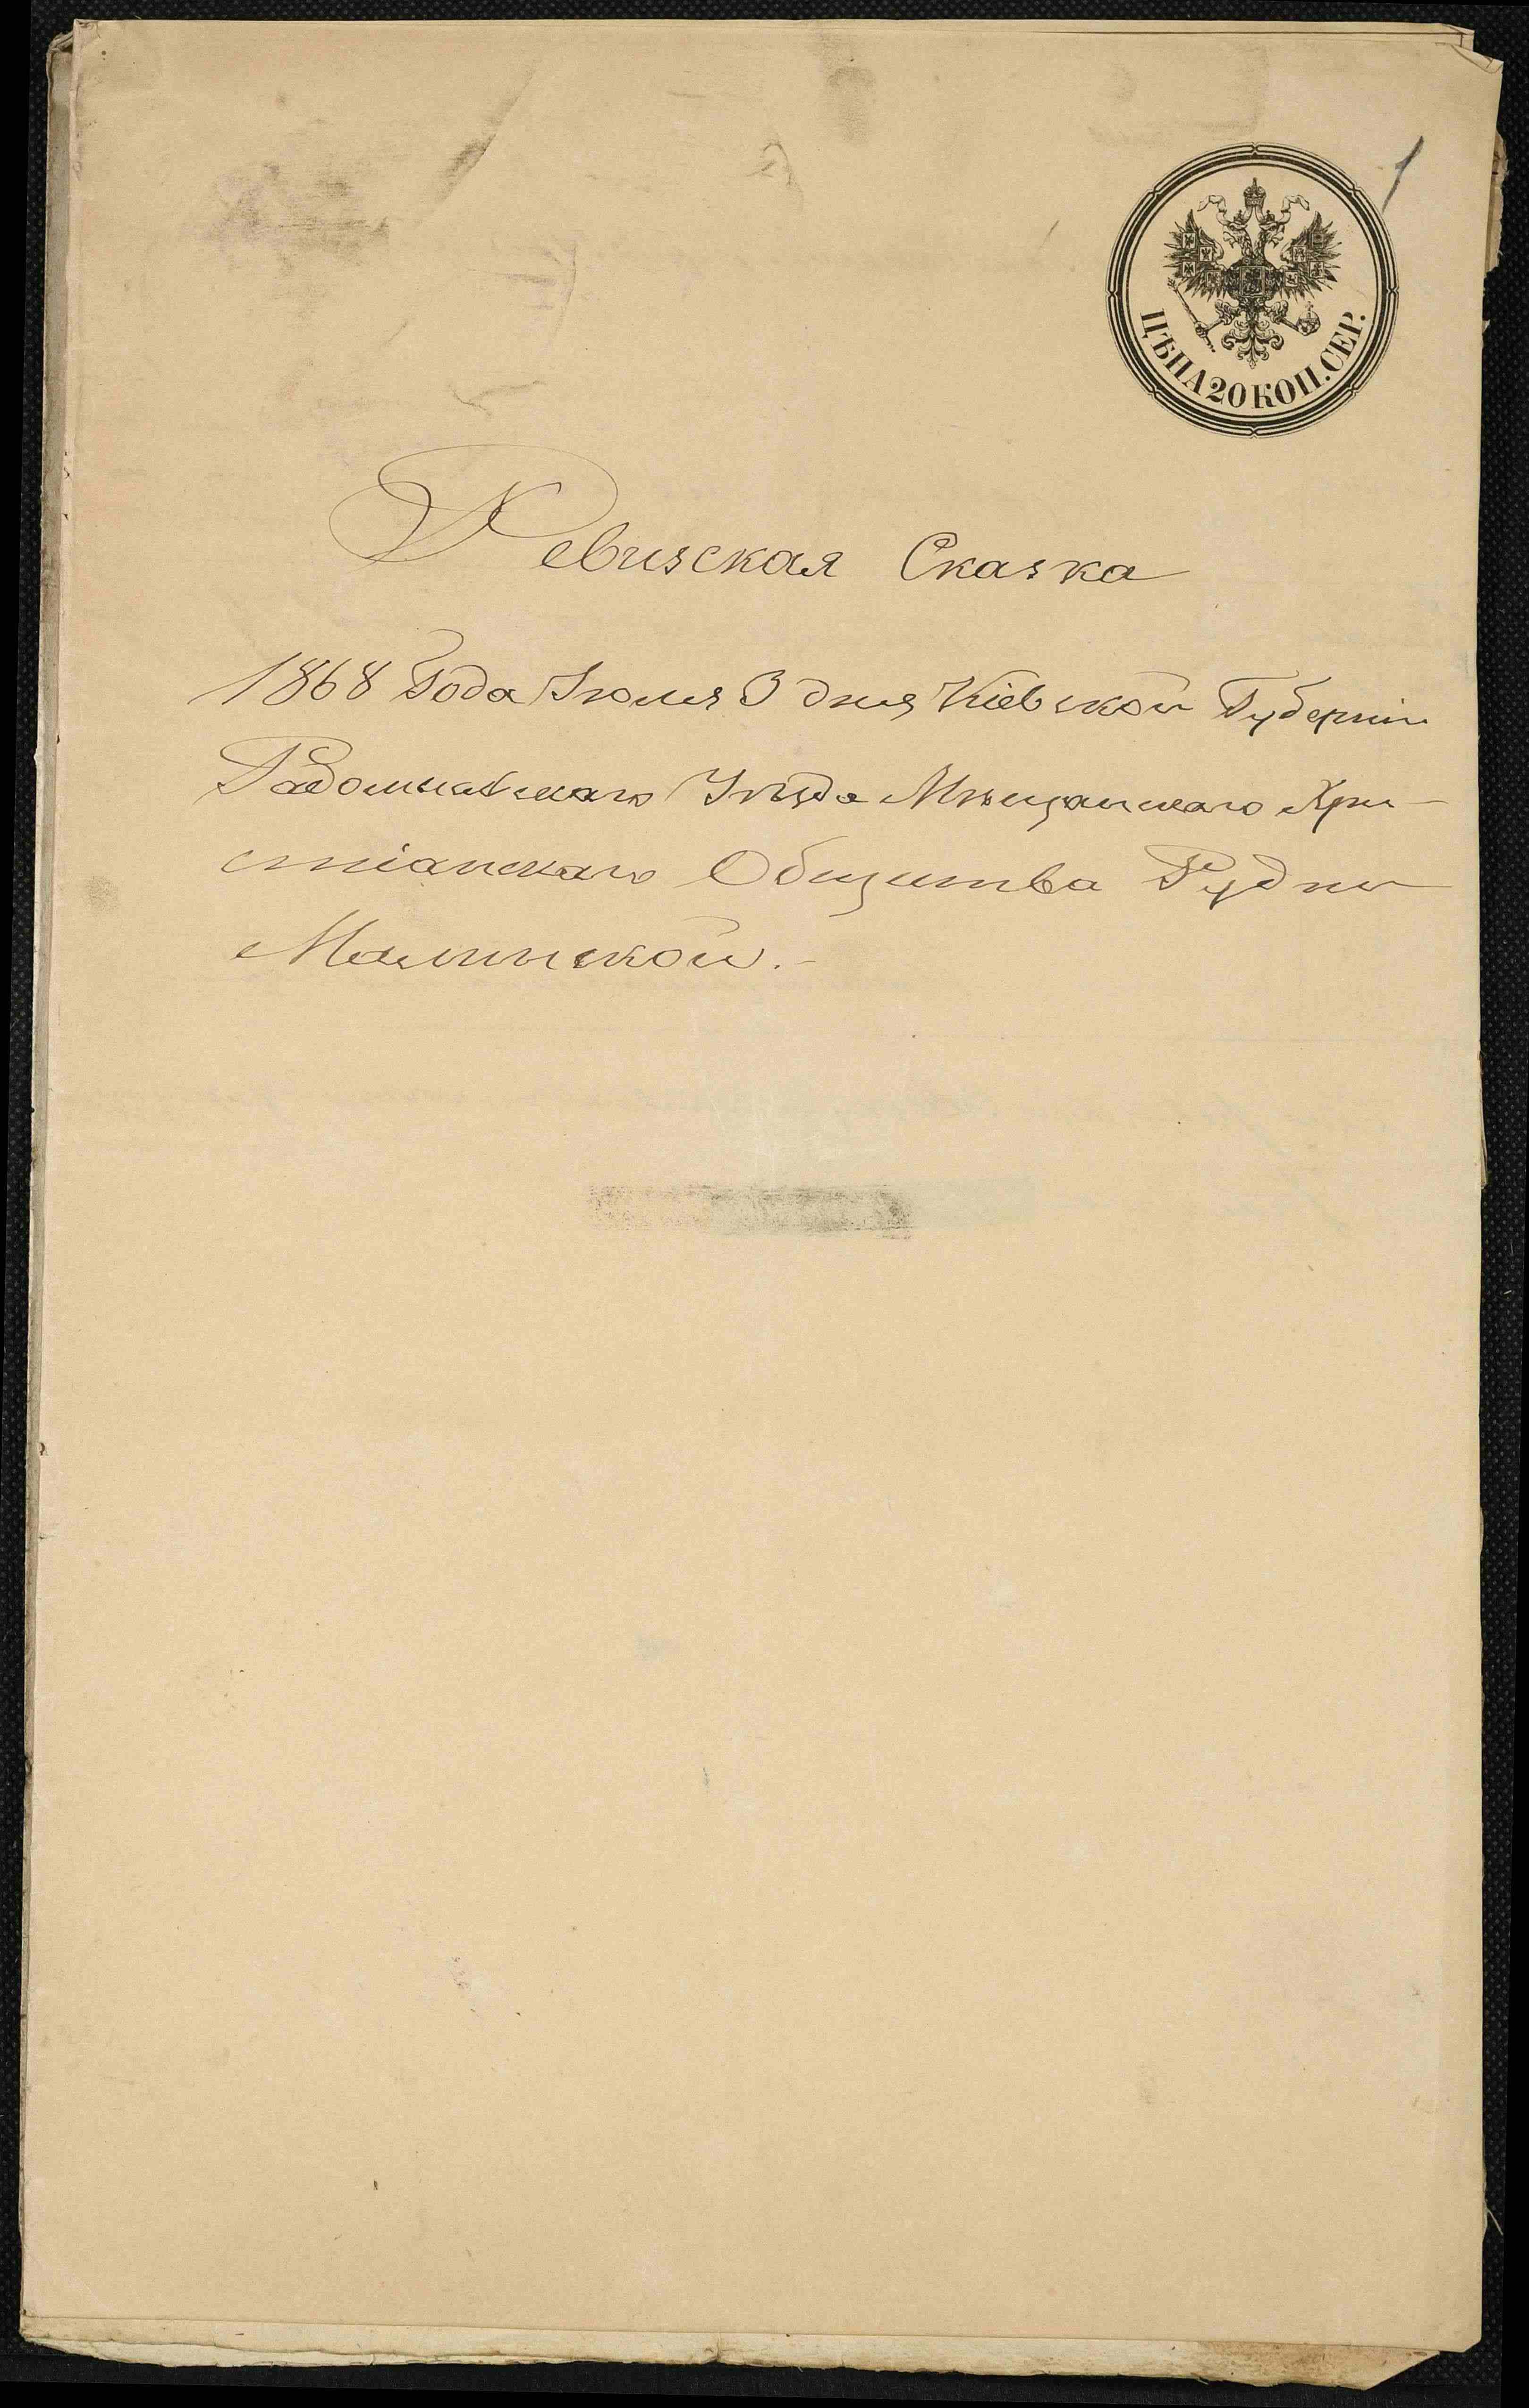 1
ЦѢНА 20 КОП. СЕР.
Ревизская Сказка
1868 Года Июля 3 дня Кіевской Губерніи
Радомысльскаго Уѣзда Мѣщанскаго Хри-
стіанскаго Общества Рудни
Малинской.-